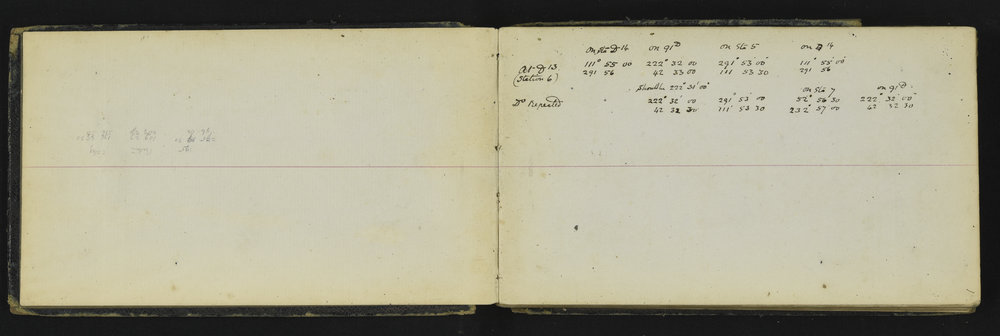 on Sta D 14 on 91D on Sta 5 on D 14
At D 13 111° 55 00 222° 32 00 291° 53 00 111° 55 00
(Station 6) 291 56 42 33 00 111 53 30 291 56
Shoulbe 222° 31' 00" on Sta 7 on 91D
Do Repeated 222° 32' 00 291° 53' 00 52° 56 30 222° 32' 00
42 32 30 111 53 30 232° 57 00 42 32 30